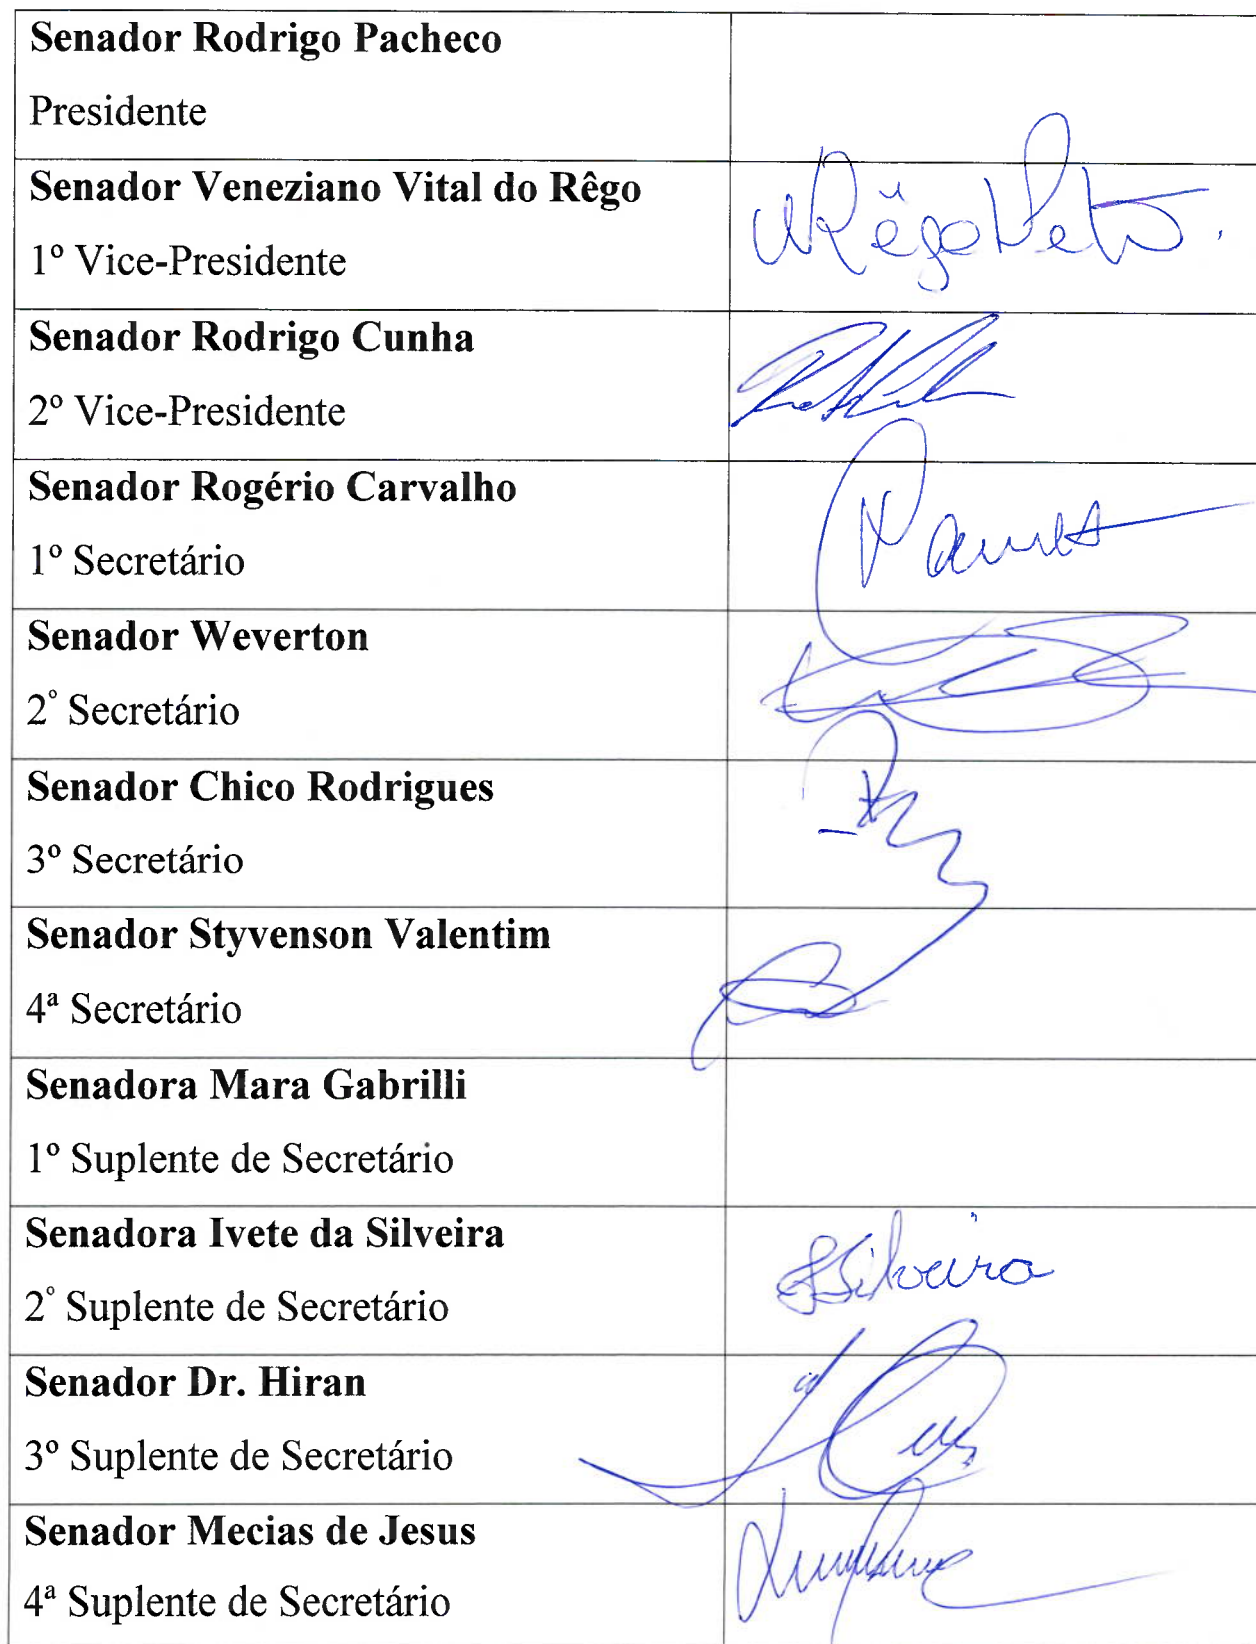 Senador Rodrigo Pacheco
Presidente
Senador Veneziano Vital do Rêgo
1º Vice-Presidente
RêgoNeto.
Senador Rodrigo Cunha
2º Vice-Presidente
Senador Rogério Carvalho
1º Secretário
Senador Weverton
2° Secretário
Senador Chico Rodrigues
3º Secretário
Senador Styvenson Valentim
4ª Secretário
Senadora Mara Gabrilli
1º Suplente de Secretário
Senadora Ivete da Silveira
2° Suplente de Secretário
Silveira
Senador Dr. Hiran
3º Suplente de Secretário
Senador Mecias de Jesus
4ª Suplente de Secretário